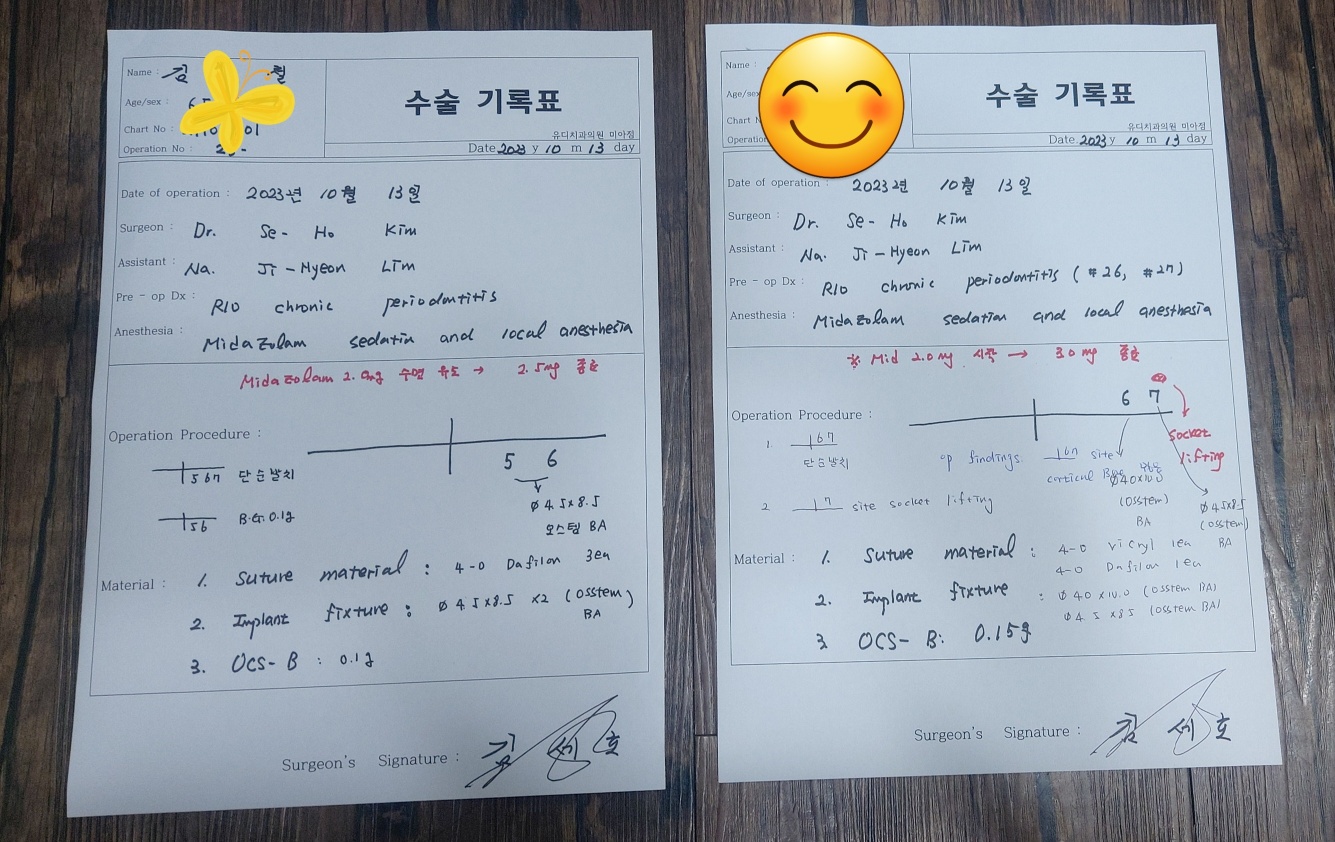 Name : 김 월
수술 기록표
Age/sex : 6
Chart No : 01
유디치과의원 미아점
Operation No :
Date 2023 y 10 m 13 day
Date of operation : 2023년 10월 13일
Surgeon : Dr. Se- Ho Kim
Assistant : Na. Ji-Hyeon Lim
Pre - op Dx : R/O chronic periodontitis
Anesthesia : Midazolam sedatin and local anesthesia
Midazolam 2.0mg 수면 유도 → 2.5mg 종료
Operation Procedure :
5 6 7 단순발치
5 6
5 6 B.G 0.1g
ø 4.5x8.5
오스템 BA
Material : 1. Suture material : 4-0 Dafilon 3ea
2. Implant fixture : ø 4.5x8.5 x2 (osstem)
BA
3. OCS-B : 0.1g
Surgeon's Signature : 김 세 호
Name :
수술 기록표
Age/sex
Chart N
유디치과의원 미아점
Operation
Date 2023 y 10 m 13 day
Date of operation : 2023년 10월 13일
Surgeon : Dr. Se- Ho Kim
Assistant : Na. Ji-Hyeon Lim
Pre - op Dx : R/O chronic periodontitis (#26, #27)
Anesthesia : Midazolam sedation and local anesthesia
※ Mid 2.0mg 시작 → 3.0mg 종료
6 7
Operation Procedure :
socket
lifting
1. 6 7
단순발치
op findings. 6 7 site
cortical
ø 4.0x10.0
(osstem)
BA
ø 4.5x8.5
(osstem)
BA
2 7 site socket lifting
Material : 1. Suture material : 4-0 vicryl 1ea
4-0 Dafilon 1ea
2. Implant fixture : ø 4.0 x 10.0 (osstem BA)
ø 4.5 x 8.5 (osstem BA)
3 OCS-B: 0.15g
Surgeon's Signature : 김 세 호